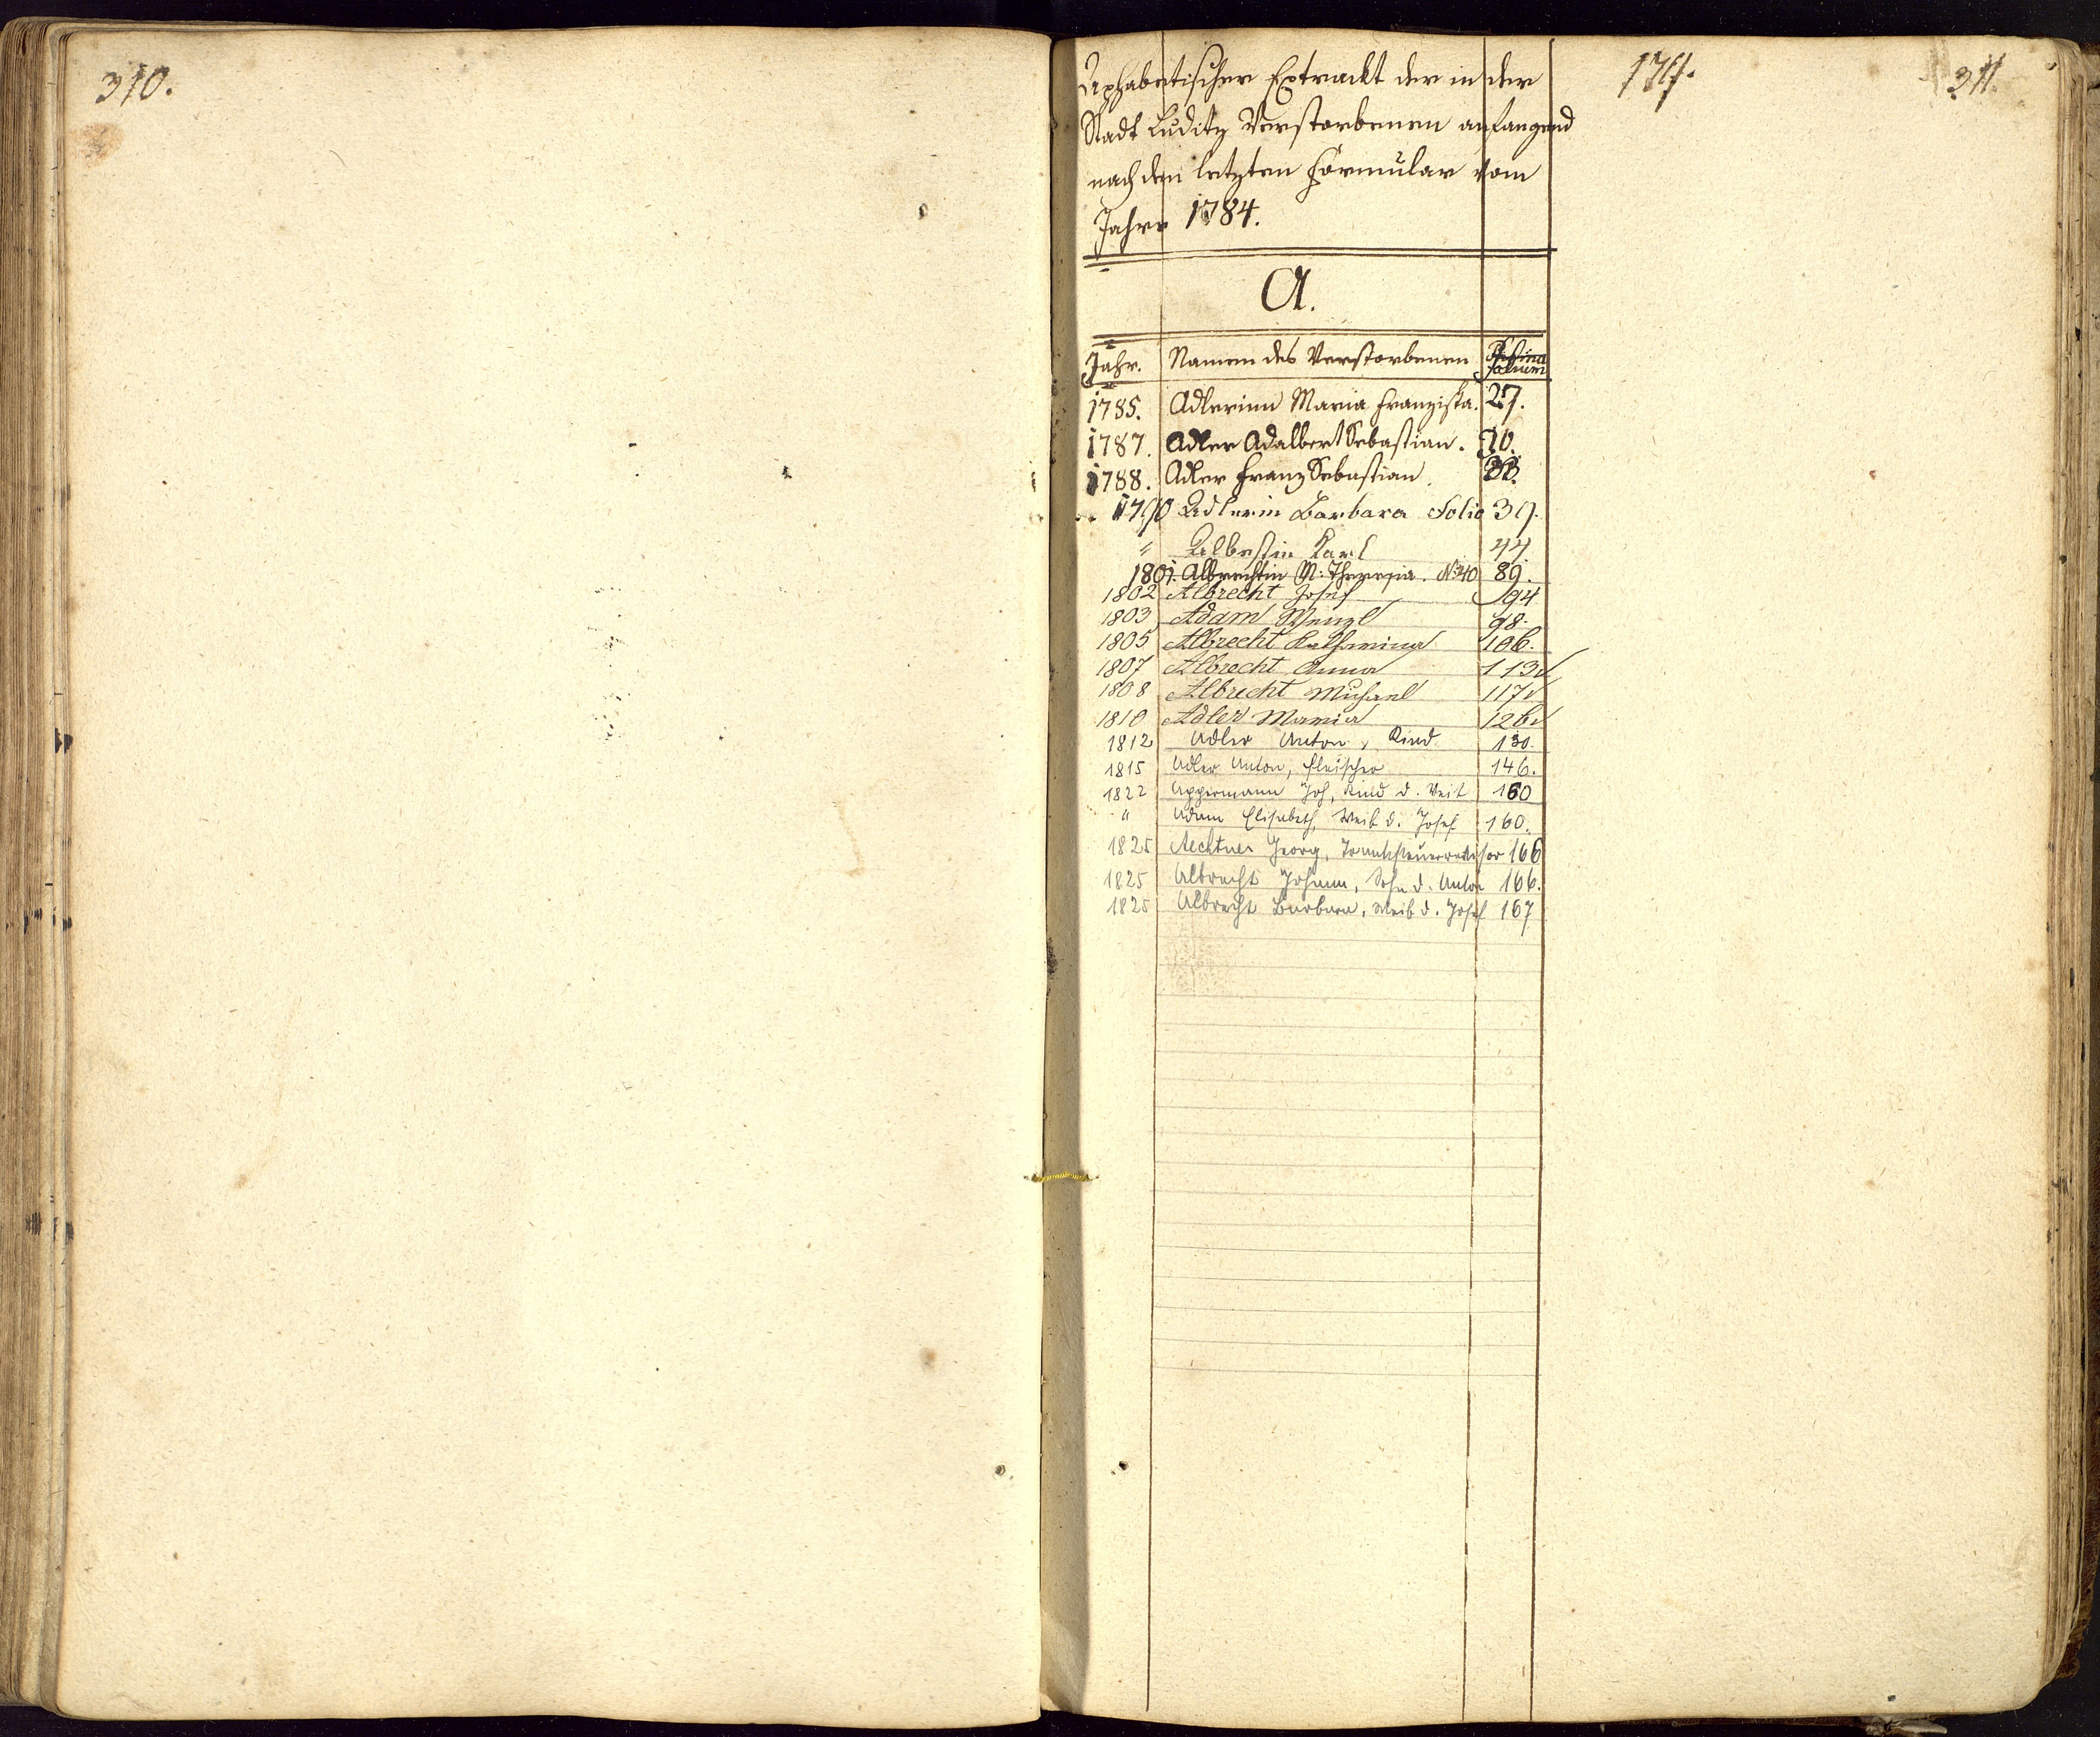 310.
Alphabetischer Extrackt der in der
Stadt Luditz Verstorbenen anfangend
nach dem letzten Formular vom
Jahre 1784.
174.
311.
A.
Jahr. Namen des Verstorbenen Folium
1785. Adlerinn Maria Franziska. 27.
1787. Adler Adalbert Sebastian. 30.
1788. Adler Franz Sebastian. 33.
1790 Adlerin Barbara Folio 39.
" Karl 44.
1801. Albrechtin M: Theresia. No 40 89.
1802 Albrecht Josef 94
1803 Adam Wenzl 98.
1805 Albrecht Katharina 106.
1807 Albrecht Anna 113
1808 Albrecht Michael 117
1810 Adler Maria 126
1812 Adler Anton, Kind 130.
1815 Adler Anton, Fleischer 146.
1822 Appermann Joh, Kind d. Veit 160
" Adam Elisabeth, Weib d. Josef 160.
1825 Aechtner Georg, Tranksteuerrevisor 166
1825 Albrecht Johann, Sohn d. Anton 166.
1825 Albrecht Barbara, Weib d. Josef 167